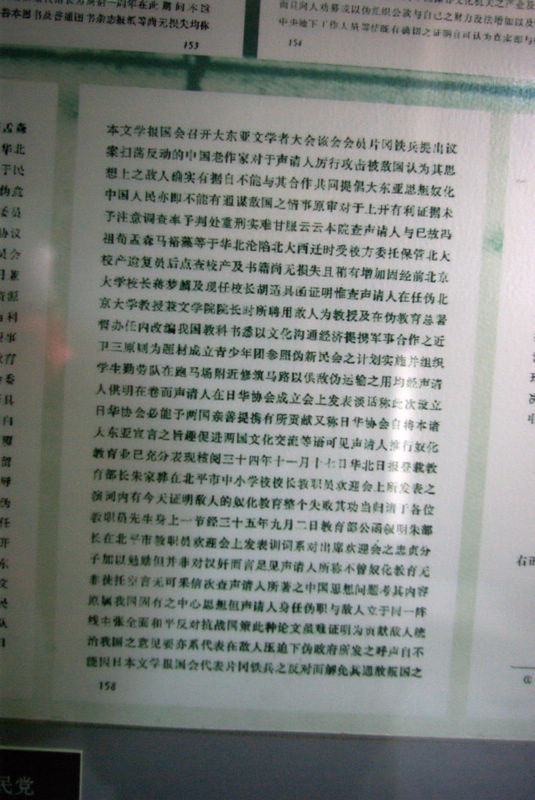 153
154
本文学报国会召开大东亚文学者大会该会会员片冈铁兵提出议
案扫荡反动的中国老作家对于声请人厉行攻击被敌国认为其思
想上之敌人确实有据自不能与其合作共同提倡大东亚思想奴化
中国人民亦即不能有通谋敌国之情事原审对于上开有利证据未
予注意调查率予判处重刑实难甘服云云本院查声请人与已故冯
祖荀孟森马裕藻等于华北沦陷北大西迁时受校方委托保管北大
校产迨复员后点查校产及书籍尚无损失且稍有增加固经前北京
大学校长蒋梦麟及现任校长胡适具函证明惟查声请人在任伪北
京大学教授兼文学院院长时所聘用敌人为教授及在伪教育总署
督办任内改编我国教科书悉以文化沟通经济提携军事合作之近
卫三原则为题材成立青少年团参照伪新民会之计划实施并组织
学生勤劳队在跑马场附近修筑马路以供敌伪运输之用均经声请
人供明在卷而声请人在日华协会成立会上发表谈话称此次设立
日华协会必能予两国亲善提携有所贡献又称日华协会自将本诸
大东亚宣言之旨趣促进两国文化交流等语可见声请人推行奴化
教育业已充分表现核阅三十四年十一月十七日华北日报登载教
育部长朱家骅在北平市中小学校校长教职员欢迎会上所发表之
演词内有今天证明敌人的奴化教育整个失败其功当归诸于各位
教职员先生身上一节经三十五年九月二日教育部公函叙明朱部
长在北平市教职员欢迎会上发表训词系对出席欢迎会之忠贞分
子加以勉励但并非对汉奸而言足见声请人所称不曾奴化教育无
非徒托空言无可采信次查声请人所著之中国思想问题考其内容
原属我国固有之中心思想但声请人身任伪职与敌人立于同一阵
线主张全面和平反对抗战国策此种论文虽难证明为贡献敌人统
治我国之意见要亦系代表在敌人压迫下伪政府所发之呼声自不
能因日本文学报国会代表片冈铁兵之反对而解免其通敌叛国之
158
民党